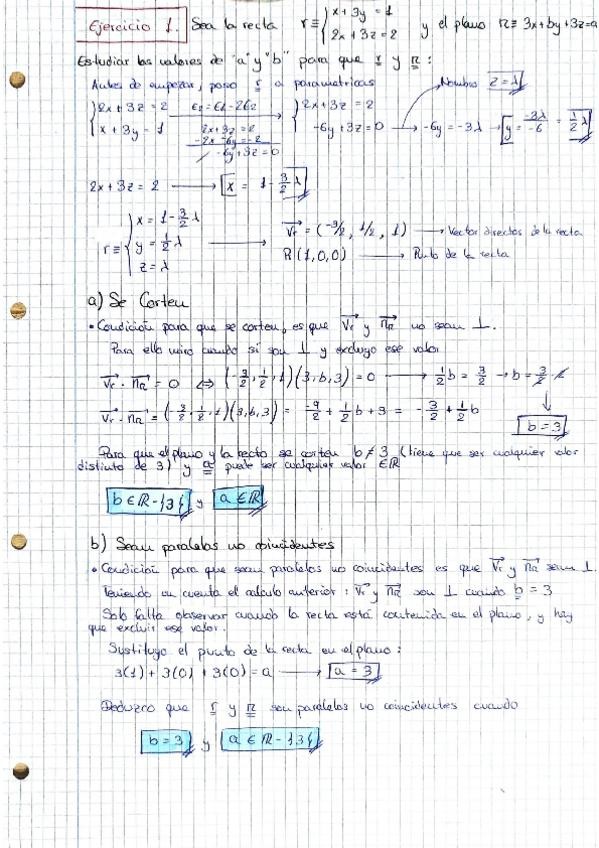 Ejercicio 1. Sea la recta r ≡ { x + 3y = 1 ; 2x + 3z = 2 y el plano π ≡ 3x + by + 3z = a
Estudiar los valores de "a" y "b" para que r y π :
Antes de empezar, paso r a paramétricas
Nombro z = λ
{ 2x + 3z = 2 ; x + 3y = 1 → { 2x + 3z = 2 ; -6y + 3z = 0 → -6y = -3λ → y = -3λ/-6 = 1/2 λ
2x + 3z = 2
-2x - 6y = -2
/ -6y + 3z = 0
2x + 3z = 2 → x = 1 - 3/2 λ
r ≡ { x = 1 - 3/2 λ ; y = 1/2 λ ; z = λ → Vr = (-3/2, 1/2, 1) → Vector director de la recta
R(1,0,0) → Punto de la recta
a) Se Corten
• Condición para que se corten, es que Vr y nπ no sean ⊥.
Para ello miro cuando sí son ⊥ y excluyo ese valor
Vr · nπ = 0 ⇔ (-3/2, 1/2, 1)(3, b, 3) = 0 → 1/2 b = 3/2 → b = 3/2 · 2
Vr · nπ = (-3/2, 1/2, 1)(3, b, 3) = -9/2 + 1/2 b + 3 = -3/2 + 1/2 b
b = 3
Para que el plano y la recta se corten b ≠ 3 (tiene que ser cualquier valor
distinto de 3) y a puede ser cualquier valor ∈ ℝ
b ∈ ℝ - {3} y a ∈ ℝ
b) Sean paralelos no coincidentes
• Condición para que sean paralelos no coincidentes es que Vr y nπ sean ⊥.
Teniendo en cuenta el calculo anterior : Vr y nπ son ⊥ cuando b = 3
Solo falta observar cuando la recta está contenida en el plano, y hay
que excluir ese valor.
Systituyo el punto de la recta en el plano :
3(1) + 3(0) + 3(0) = a → a = 3
Deduzco que r y π son paralelos no coincidentes cuando
b = 3 y a ∈ ℝ - {3}